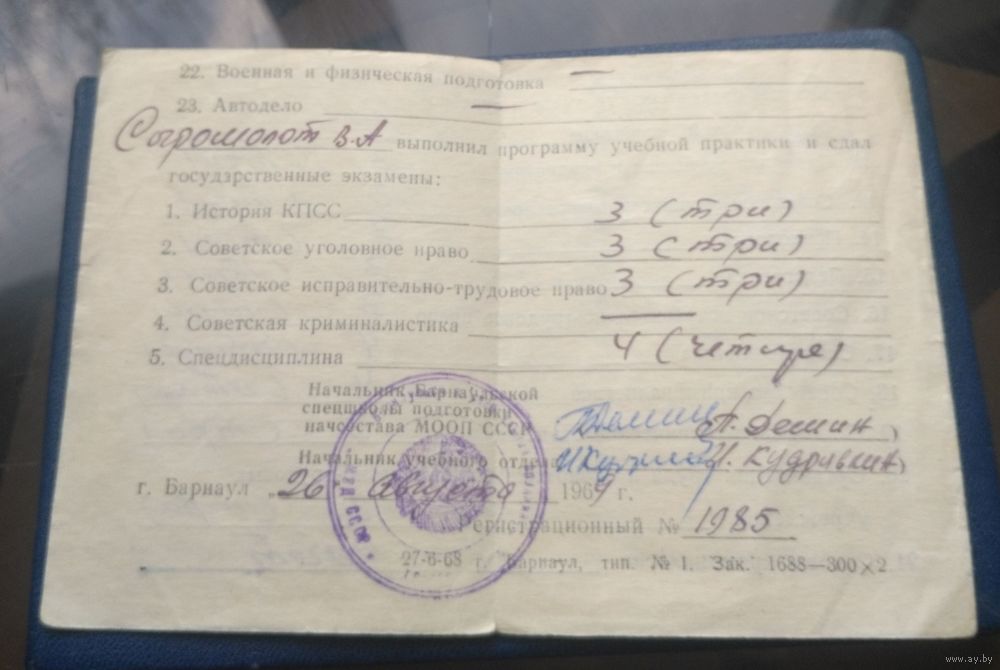 22. Военная и физическая подготовка —
23. Автодело —
Сыромолот В.А выполнил программу учебной практики и сдал
государственные экзамены:
1. История КПСС 3 (три)
2. Советское уголовное право 3 (три)
3. Советское исправительно-трудовое право 3 (три)
4. Советская криминалистика —
5. Спецдисциплина 4 (четыре)
Начальник Барнаульской
спецшколы подготовки
начсостава МООП СССР П. Демин
Начальник учебного отдела И. Кудрявкин
г. Барнаул „26 августа 1969 г.
Регистрационный № 1985
27-6-68 г. Барнаул, тип. № 1. Зак. 1688—300×2
www.ay.by